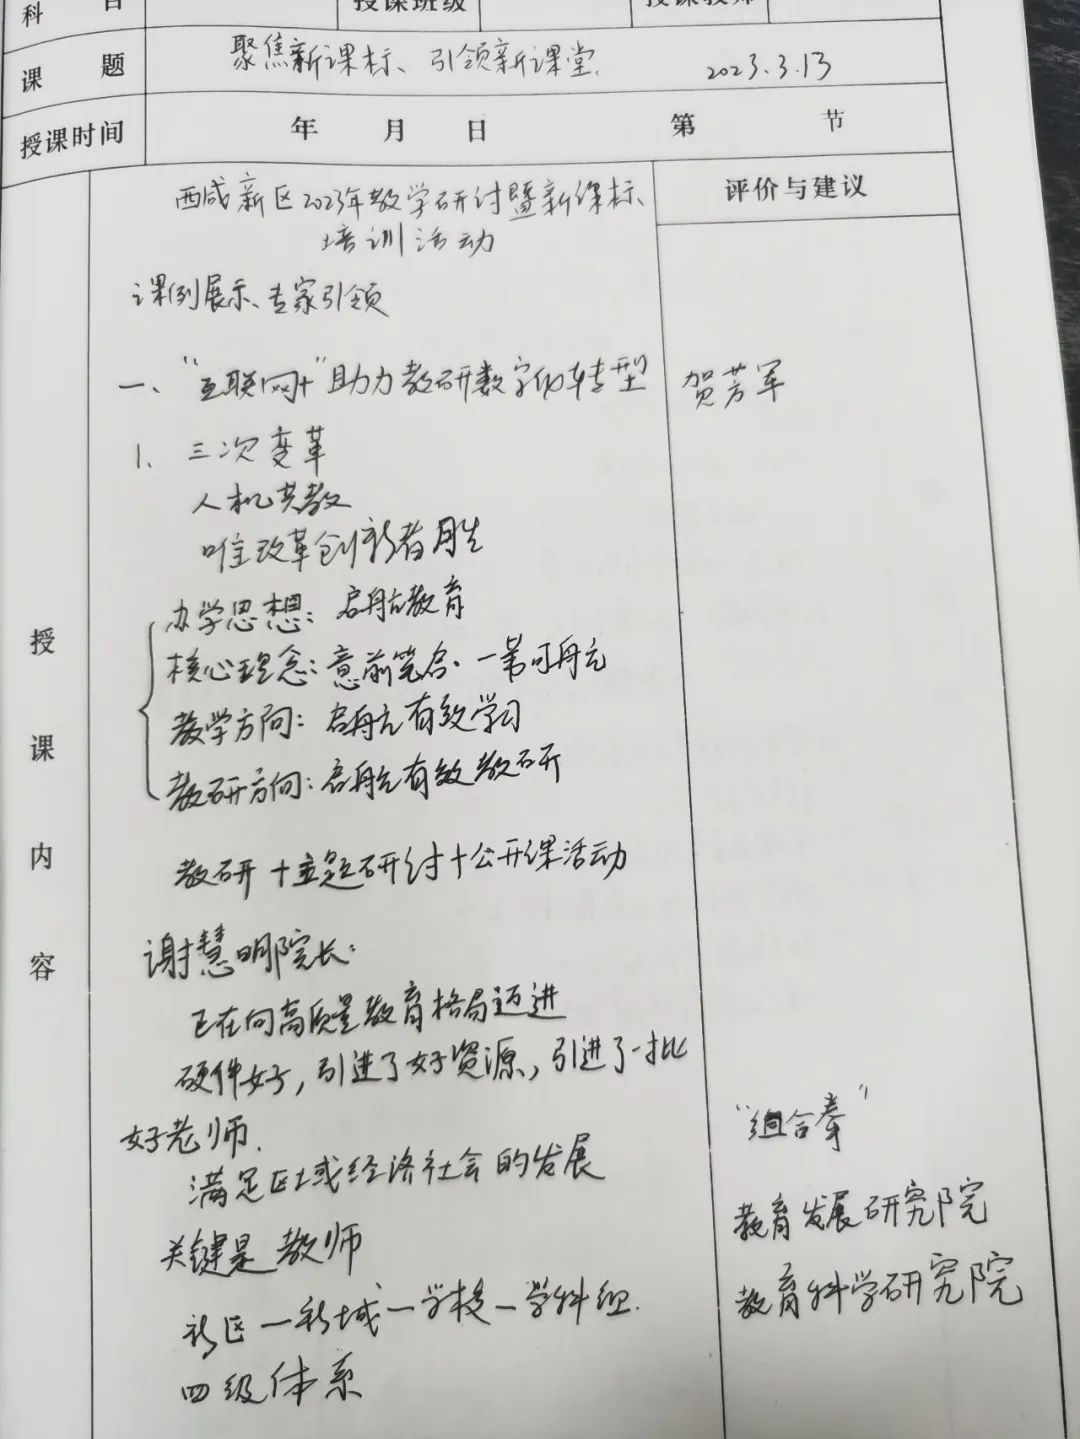 科 目 授课班级 授课教师
课 题 聚焦新课标、引领新课堂. 2023.3.13
授课时间 年 月 日 第 节
西咸新区2023年教学研讨暨新课标、
培训活动
评价与建议
课例展示、专家引领
一、“互联网+”助力教研数字化转型 贺芳军
1、三次变革
人机共教
唯改革创新者胜
办学思想：启航教育
核心理念：意前笔后·一苇可航
教学方向：启航有效学习
教研方向：启航有效教研
教研+主题研讨+公开课活动
谢慧明院长：
正在向高质量教育格局迈进
硬件好，引进了好资源，引进了一批
好老师.
“组合拳”
满足区域经济社会的发展
教育发展研究院
关键是教师
教育科学研究院
新区—新城—学校—学科组.
四级体系
授课内容